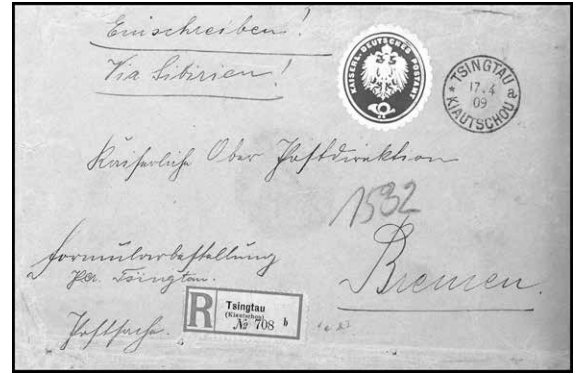 Einschreiben!
Via Sibirien!
KAISERL. DEUTSCHES POSTAMT
TSINGTAU
a
17.4
09
* KIAUTSCHOU
Kaiserliche Ober Postdirektion
1592
Bremen.
Formularbestellung
PA. Tsingtau.
Postsache.
R
Tsingtau
(Kiautschou)
№ 708 b